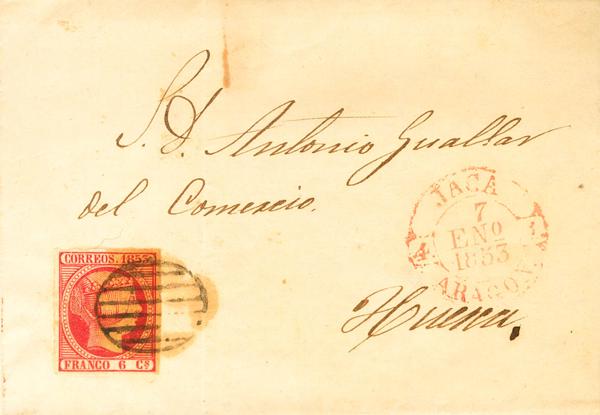 S. D. Antonio Guallar
del Comercio.
JACA
7
ENO
1853
ARAGON.
Huesca.
CORREOS. 1853
FRANCO 6 Cs